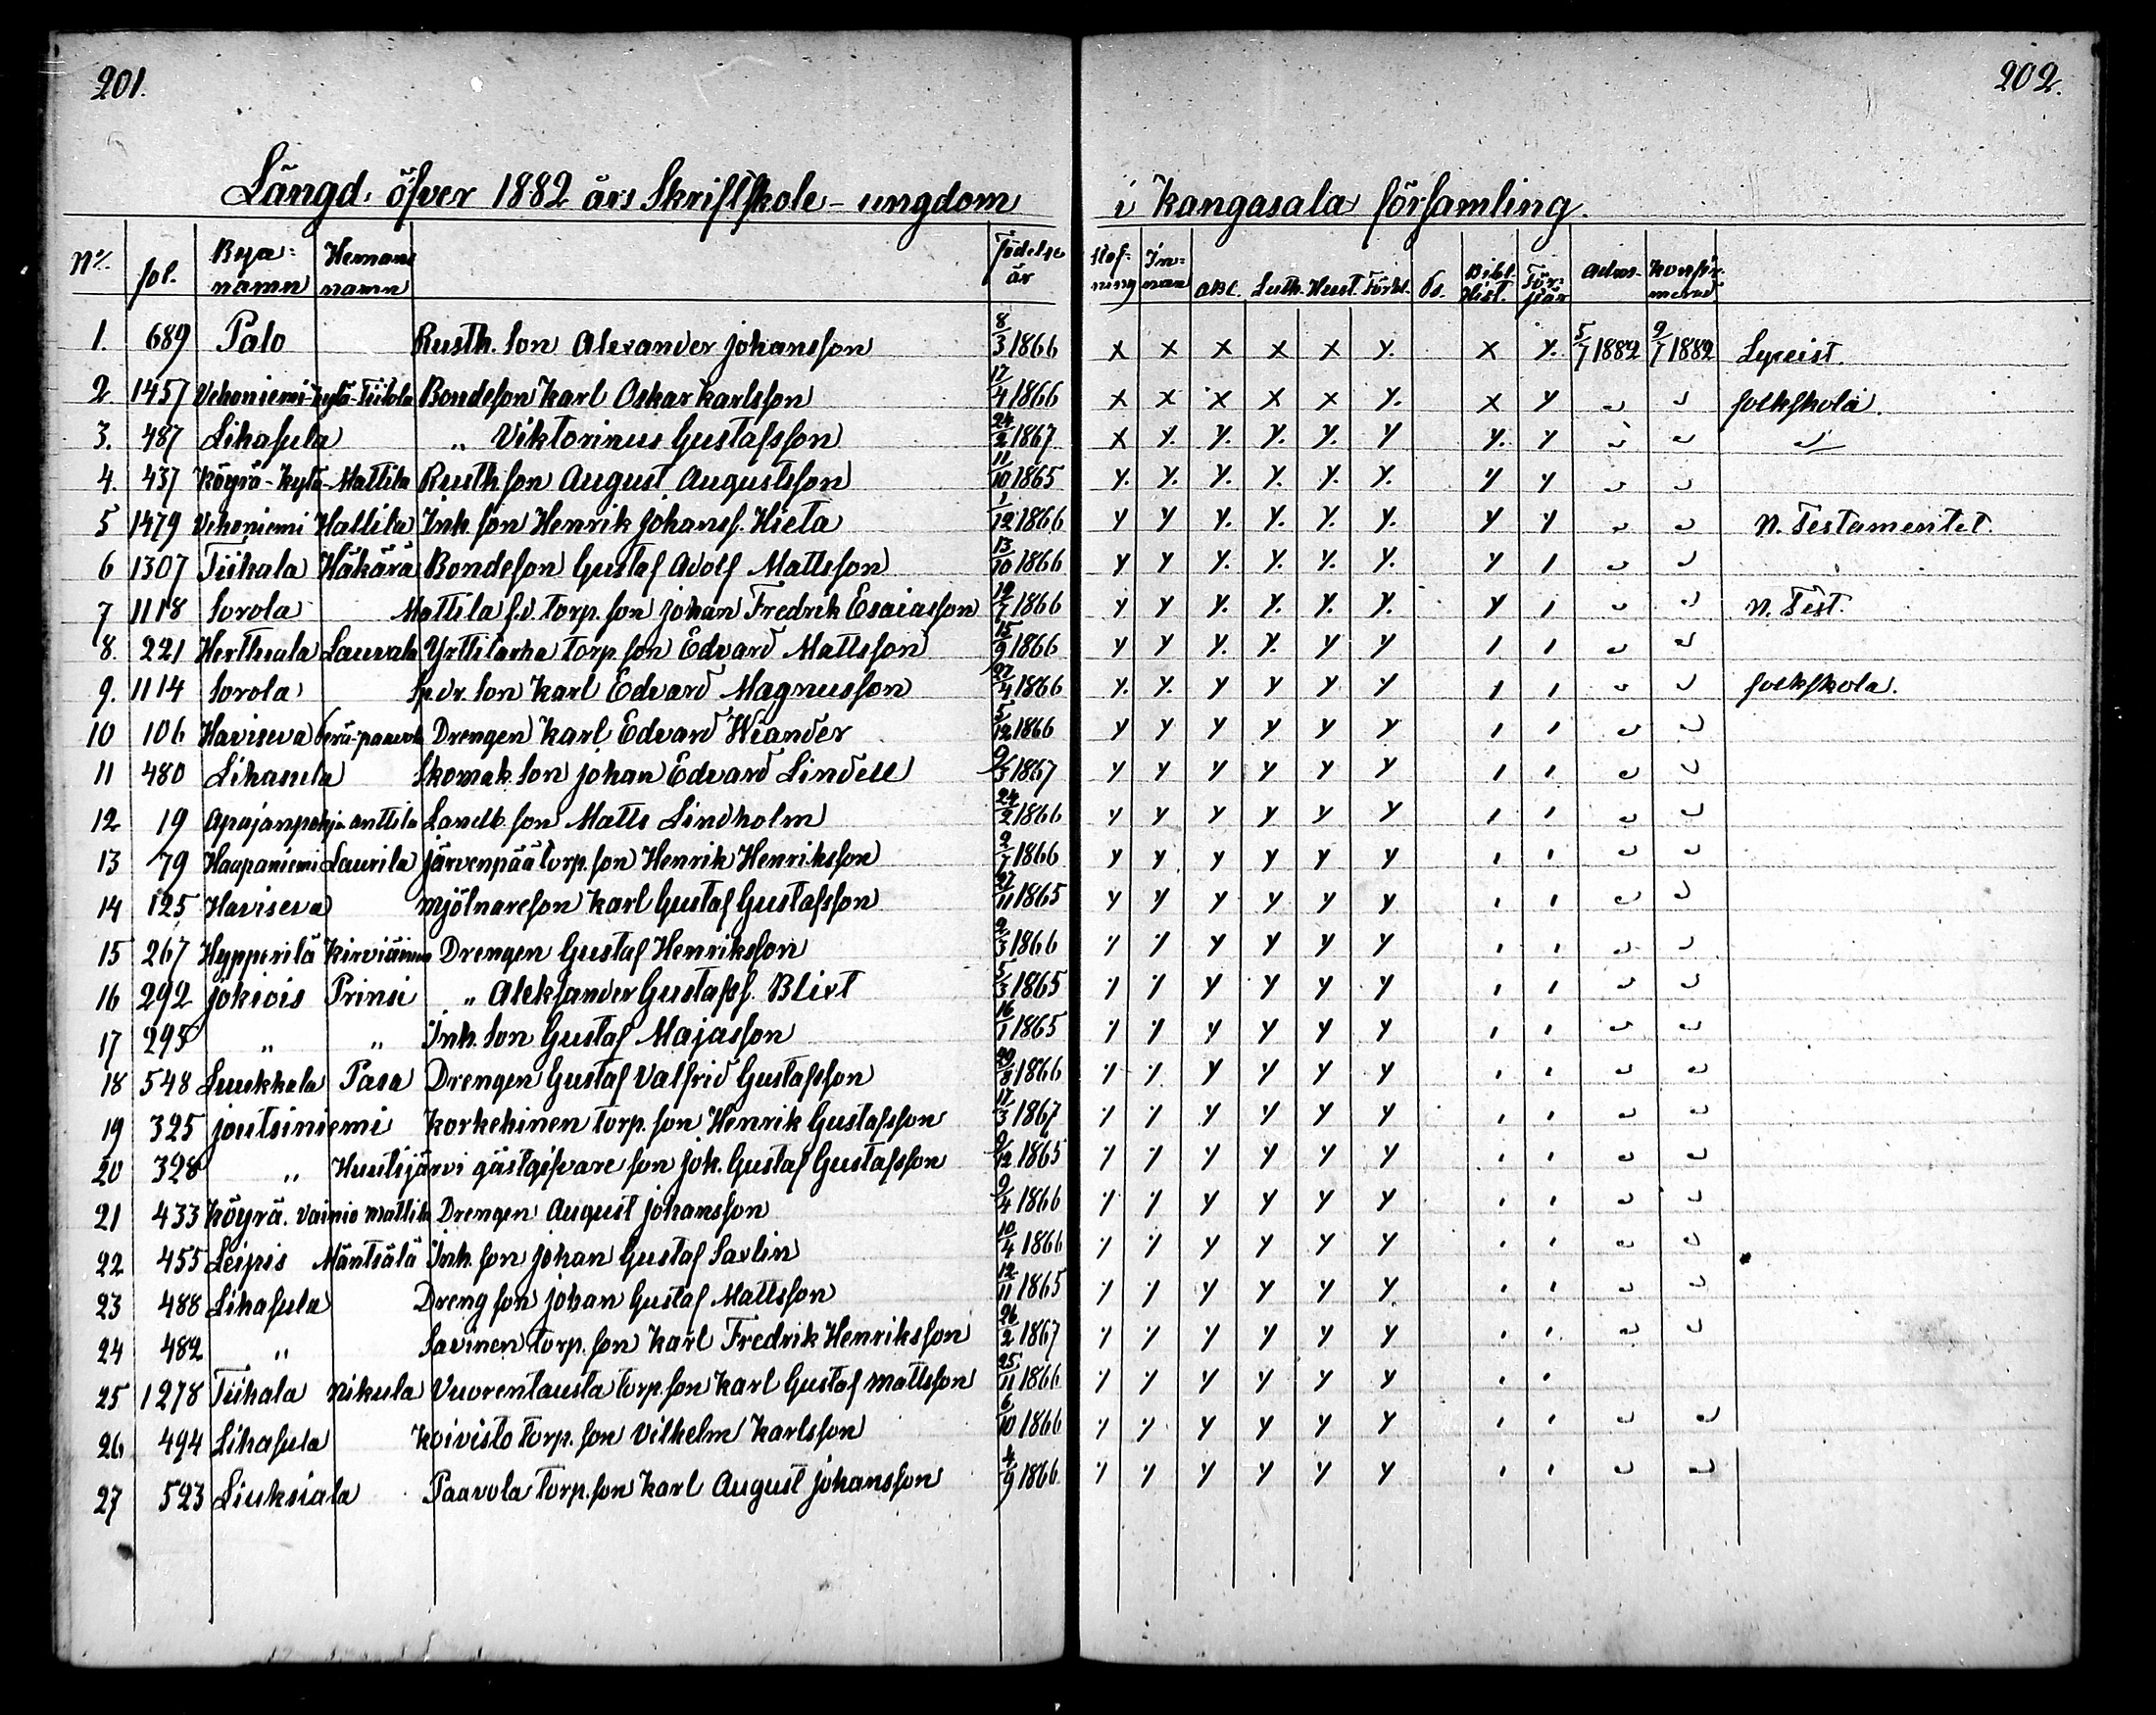 201.
202.
Längd. öfver 1882 års Skriftskole-ungdom i Kangasala församling.
No. fol. Bya-namn Hemans namn Födelse år Stafning Innan ABC. Luth. Hust. Förkl. Ps. Bibl. Hist. Förstån Adm. Konfirmerad
1. 689 Palo Rusth. Son Alexander Johansson 8/3 1866 x x x x x y. x y. 5/7 1882 9/7 1882 Lyceist.
2 1457 Vehoniemi-kylä-Tiitola Bondeson Karl Oskar Karlsson 17/4 1866 x x x x x y. x y " " folkskola.
3. 487 Lihasula " Viktorinus Gustafsson 24/2 1867 x y. y. y. y. y y. y " " "
4. 437 Köyrä-kylä-Mattila Rusth son August Augustsson 11/10 1865 y. y. y. y. y. y. y y " "
5 1479 Vehoniemi Hallika Inh. son Henrik Johanss. Hieta 1/12 1866 y y y. y. y. y. y y " " N. Testamentet.
6 1307 Tiihala Häkärä Bondeson Gustaf Adolf Mattsson 13/10 1866 y y y. y. y. y. y / " "
7 1118 Sorola Mattila f.d. torp. son Johan Fredrik Esaiasson 19/7 1866 y y y. y. y. y. y / " " N. Test.
8. 221 Herttuala Laurala Yrttilarha torp. son Edvard Mattsson 15/9 1866 y y y. y. y y / / " "
9. 1114 Sorola Sp.dr. Son Karl Edvard Magnusson 27/4 1866 y. y. y y y y / / " " folkskola.
10 106 Haviseva Perä-paavola Drengen Karl Edvard Wiander 5/12 1866 y y y y y y / / " "
11 480 Lihasula Skomak. Son Johan Edvard Lindell 9/3 1867 y y y y y y / / " "
12 19 Apajanpohja Anttila Landb. son Matts Lindholm 24/2 1866 y y y y y y / / " "
13 79 Haapaniemi Laurila Järvenpää torp. son Henrik Henriksson 2/7 1866 y y y y y y / / " "
14 125 Haviseva Mjölnareson Karl Gustaf Gustafsson 27/11 1865 y y y y y y / / " "
15 267 Hypperilä Drengen Gustaf Henriksson 9/3 1866 y y y y y y / / " "
16 292 Jokiois Prinsi " Aleksander Gustafss. Blixt 5/3 1865 y y y y y y / / " "
17 295 " " Inh. Son Gustaf Majasson 16/1 1865 y y y y y y / / " "
18 548 Luukkala Pasa Drengen Gustaf Valfrid Gustafsson 20/8 1866 y y y y y y / / " "
19 325 Joutsiniemi Korkehinen torp. son Henrik Gustafsson 17/3 1867 y y y y y y / / " "
20 328 " Huutijärvi gästgifvare son Joh. Gustaf Gustafsson 9/12 1865 y y y y y y / / " "
21 433 Köyrä. Vainio Mattila Drengen August Johansson 9/4 1866 y y y y y y / / " "
22 455 Leipis Mäntsälä Inh. son Johan Gustaf Savlin 10/4 1866 y y y y y y / / " "
23 488 Lihasula Dreng son Johan Gustaf Mattsson 12/11 1865 y y y y y y / / " "
24 482 " Savinen torp. son Karl Fredrik Henriksson 26/2 1867 y y y y y y / / " "
25 1278 Tiihala Nikula Vuorentausta torp. son Karl Gustaf Mattsson 25/11 1866 y y y y y y / /
26 494 Lihasula Koivisto torp. son Vilhelm Karlsson 6/10 1866 y y y y y y / / " "
27 523 Liuksiala Paavola torp. son Karl August Johansson 4/9 1866. y y y y y y / / " "